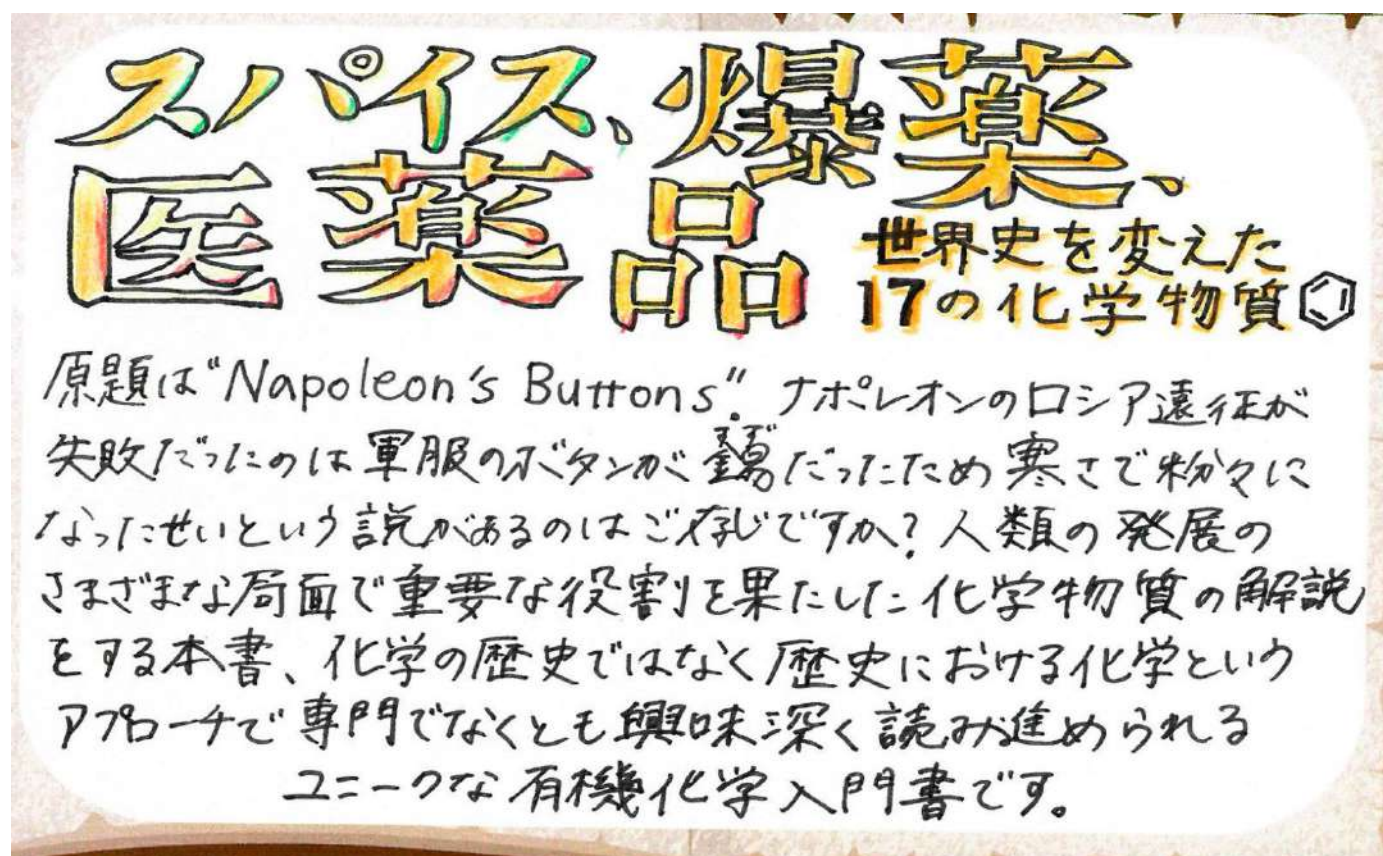 スパイス、爆薬、
医薬品
世界史を変えた
17の化学物質
原題は"Napoleon's Buttons"。ナポレオンのロシア遠征が
失敗だったのは軍服のボタンが錫だったため寒さで粉々に
すず
なったせいという説があるのはご存じですか?人類の発展の
さまざまな局面で重要な役割を果たした化学物質の解説
をする本書、化学の歴史ではなく歴史における化学という
アプローチで専門でなくとも興味深く読み進められる
ユニークな有機化学入門書です。